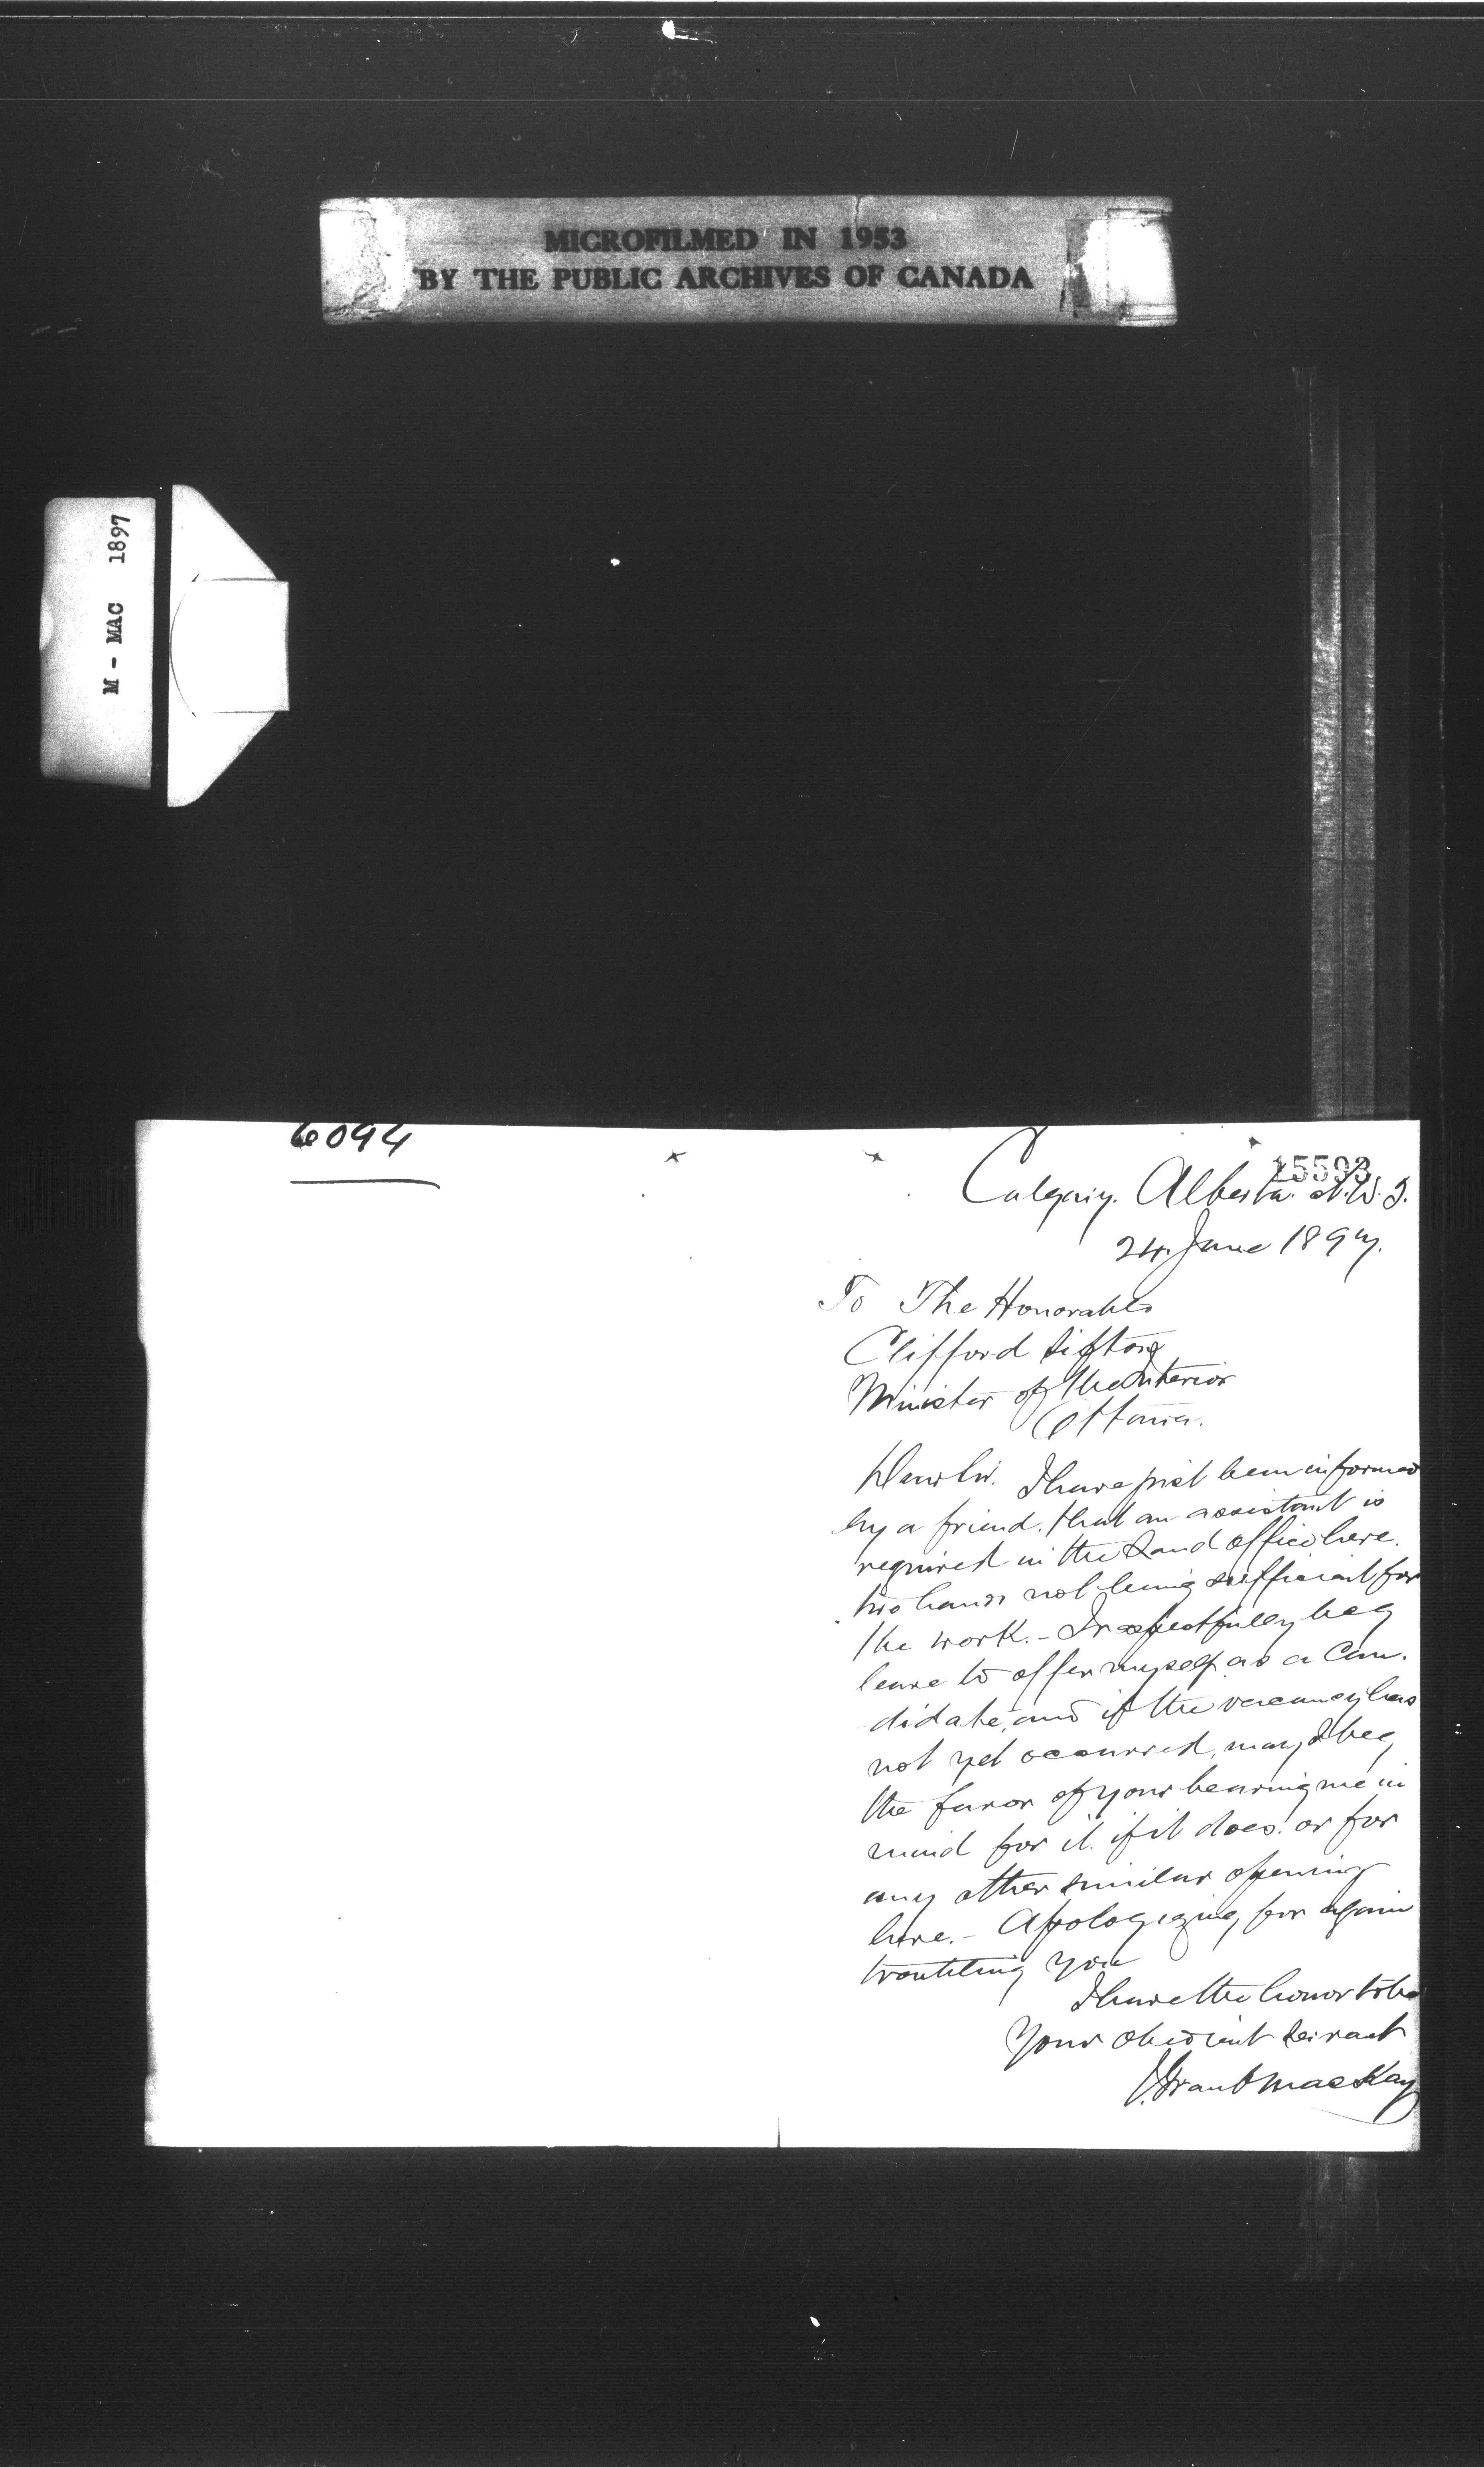 MICROFILMED IN 1953
BY THE PUBLIC ARCHIVES OF CANADA
M - MAC 1897
6094
15593
Calgary. Alberta. N.W.T.
24. June 1897.
To The Honorable
Clifford Sifton
Minister of the Interior
Ottawa.
Dear Sir. I have just been informed
by a friend. that an assistant is
required in the Land office here.
two hands not being sufficient for
the work. - I respectfully beg
leave to offer myself as a Can-
didate, and if the vacancy has
not yet occurred, may I beg
the favor of your bearing me in
mind for it. if it does. or for
any other similar opening
here. - Apologizing for again
troubling you
I have the honor to be
Your obedient Servant
J. Grant MacKay